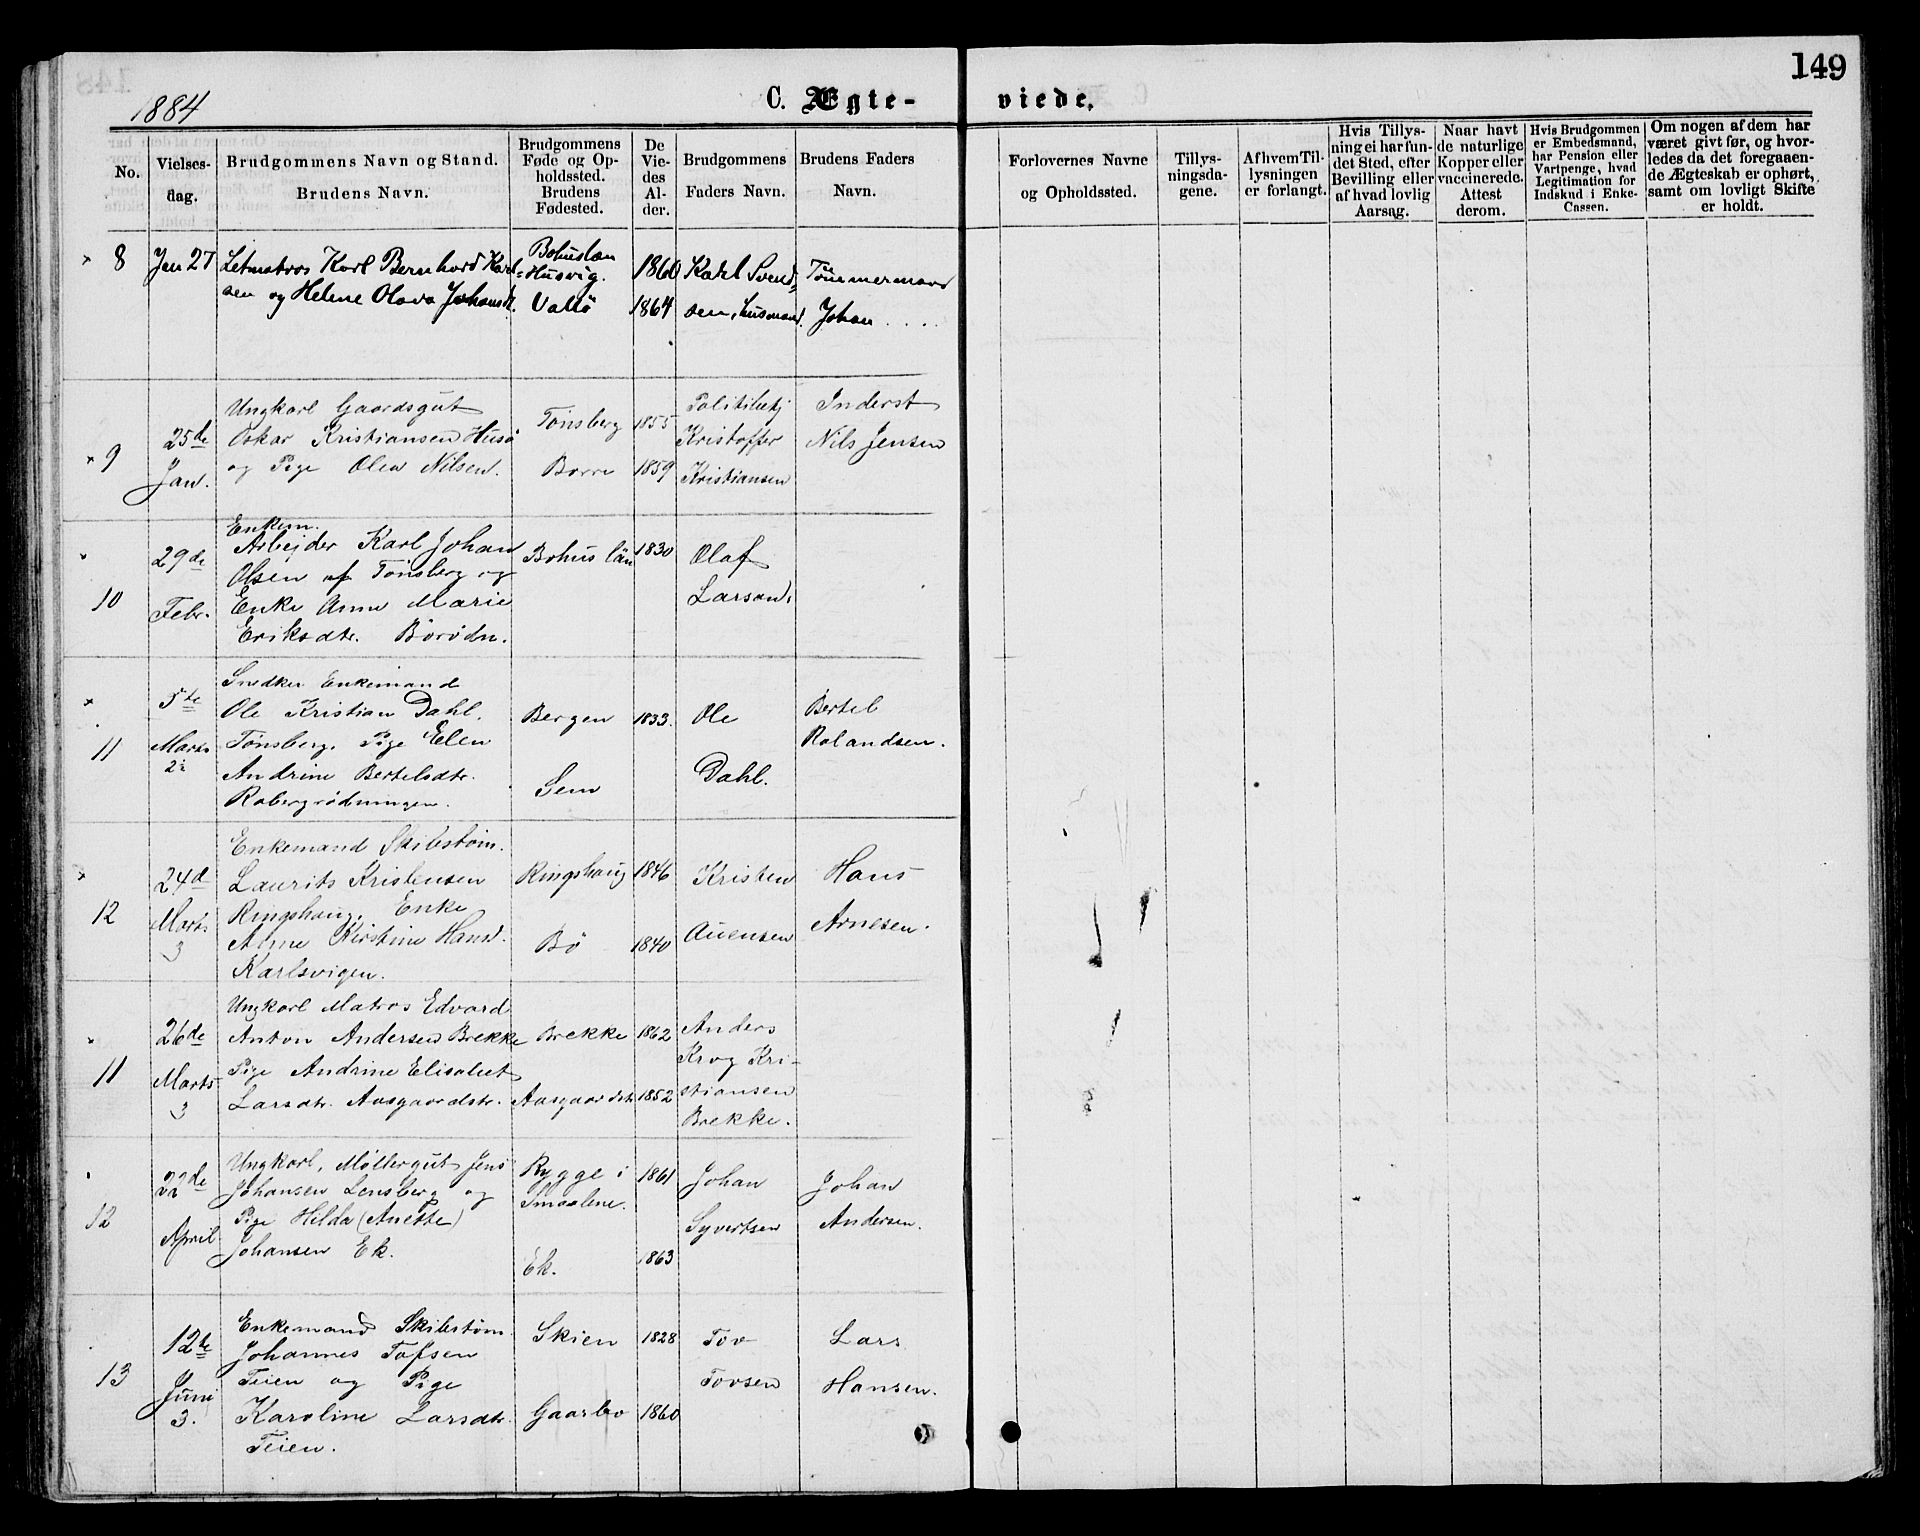 149
1884
C. Ægte-
viede,
No.
Vielses-
dag.
Brudgommens Navn og Stand.
Brudens Navn.
Brudgommens
Føde og Op-
holdssted.
Brudens
Fødested.
De
Vie-
des
Al-
der.
Brudgommens
Faders Navn.
Brudens Faders
Navn.
Forlovernes Navne
og Opholdssted.
Tillys-
ningsda-
gene.
Af hvem Til-
lysningen
er forlangt.
Hvis Tillys-
ning ei har fun-
det Sted, efter
Bevilling eller
af hvad lovlig
Aarsag.
Naar havt
de naturlige
Kopper eller
vaccinerede.
Attest
derom.
Hvis Brudgommen
er Embedsmand,
har Pension eller
Vartpenge, hvad
Legitimation for
Indskud i Enke-
Cassen.
Om nogen af dem har
været givt før, og hvor-
ledes da det foregaaen-
de Ægteskab er ophørt,
samt om lovligt Skifte
er holdt.
8
Jan 27
Letmatros Karl Bernhard Karl-
sen og Helene Olava Johansd.
Bohuslæn
Husvig.
Vallö
1860
1864
Karl Svend-
sen, husmand.
Tömmermand
Johan . . . .
9
25de
Jan.
Ungkarl Gaardsgut
Oskar Kristiansen Husö
og Pige Olea Nilsen.
Tönsberg
Borre
1855
1859
Politibetj
Kristoffer
Kristiansen
Inderst
Nils Jensen
10
29de
Febr.
Enkem.
Arbejder Karl Johan
Olsen af Tönsberg og
Enke Anne Marie
Eriksdtr.
Bohus län
1830
Olaf
Larsan.
11
5te
Marts
Snedker Enkemand
Ole Kristian Dahl.
Tönsberg. Pige Elen
Andrine Bertelsdtr.
Rabergrödningen.
Bergen
Sem
1833.
Ole
Dahl.
Bertel
Rolandsen.
12
24d
Marts
3
Enkemand Skibstöm.
Laurits Kristensen
Ringshaug. Enke
Anne Kirstine Hansd.
Karlsvigen.
Ringshaug
Bö
1846
1840
Kristen
Auensen
Hans
Arnesen.
11
26de
Marts
3
Ungkarl Matros Edvard
Anton Andersen Brekke
Pige Andrine Elisabet
Larsdtr. Aasgaardstr.
Brekke
Aasgaardstr
1862
1852
Anders
Krog Kri-
stiansen
Brekke.
12
22de
April
Ungkarl, Möllergut Jens
Johansen Lensberg og
Pige Hilda (Anette)
Johansen Ek.
Rygge i
Smaalene.
Ek.
1861
1863
Johan
Syvertsen
Johan
Andersen.
13
12te
Juni
3.
Enkemand Skibstöm
Johannes Tofsen
Teien og Pige
Karoline Larsdtr.
Teien.
Skien
Gaarbo
1828
1860
Tov
Tovsen
Lars
Hansen.